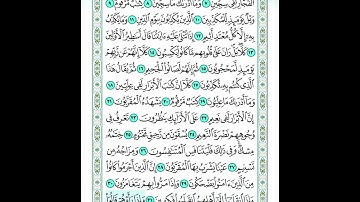 ٱلۡفُجَّارِ لَفِي سِجِّينٖ ٧ وَمَآ أَدۡرَىٰكَ مَا سِجِّينٞ ٨ كِتَٰبٞ مَّرۡقُومٞ ٩
وَيۡلٞ يَوۡمَئِذٖ لِّلۡمُكَذِّبِينَ ١٠ ٱلَّذِينَ يُكَذِّبُونَ بِيَوۡمِ ٱلدِّينِ ١١ وَمَا يُكَذِّبُ
بِهِۦٓ إِلَّا كُلُّ مُعۡتَدٍ أَثِيمٍ ١٢ إِذَا تُتۡلَىٰ عَلَيۡهِ ءَايَٰتُنَا قَالَ أَسَٰطِيرُ ٱلۡأَوَّلِينَ
١٣ كَلَّاۖ بَلۡۜ رَانَ عَلَىٰ قُلُوبِهِم مَّا كَانُواْ يَكۡسِبُونَ ١٤ كَلَّآ إِنَّهُمۡ عَن رَّبِّهِمۡ
يَوۡمَئِذٖ لَّمَحۡجُوبُونَ ١٥ ثُمَّ إِنَّهُمۡ لَصَالُواْ ٱلۡجَحِيمِ ١٦ ثُمَّ يُقَالُ هَٰذَا
ٱلَّذِي كُنتُم بِهِۦ تُكَذِّبُونَ ١٧ كَلَّآ إِنَّ كِتَٰبَ ٱلۡأَبۡرَارِ لَفِي عِلِّيِّينَ ١٨
وَمَآ أَدۡرَىٰكَ مَا عِلِّيُّونَ ١٩ كِتَٰبٞ مَّرۡقُومٞ ٢٠ يَشۡهَدُهُ ٱلۡمُقَرَّبُونَ ٢١
إِنَّ ٱلۡأَبۡرَارَ لَفِي نَعِيمٍ ٢٢ عَلَى ٱلۡأَرَآئِكِ يَنظُرُونَ ٢٣ تَعۡرِفُ فِي
وُجُوهِهِمۡ نَضۡرَةَ ٱلنَّعِيمِ ٢٤ يُسۡقَوۡنَ مِن رَّحِيقٖ مَّخۡتُومٍ ٢٥ خِتَٰمُهُۥ
مِسۡكٞۚ وَفِي ذَٰلِكَ فَلۡيَتَنَافَسِ ٱلۡمُتَنَٰفِسُونَ ٢٦ وَمِزَاجُهُۥ مِن
تَسۡنِيمٍ ٢٧ عَيۡنٗا يَشۡرَبُ بِهَا ٱلۡمُقَرَّبُونَ ٢٨ إِنَّ ٱلَّذِينَ أَجۡرَمُواْ كَانُواْ
مِنَ ٱلَّذِينَ ءَامَنُواْ يَضۡحَكُونَ ٢٩ وَإِذَا مَرُّواْ بِهِمۡ يَتَغَامَزُونَ ٣٠